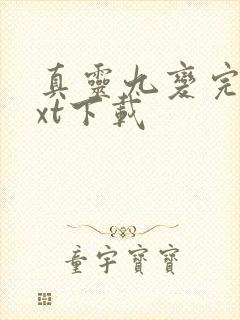 真靈九變完
xt下載
童宇寶寶